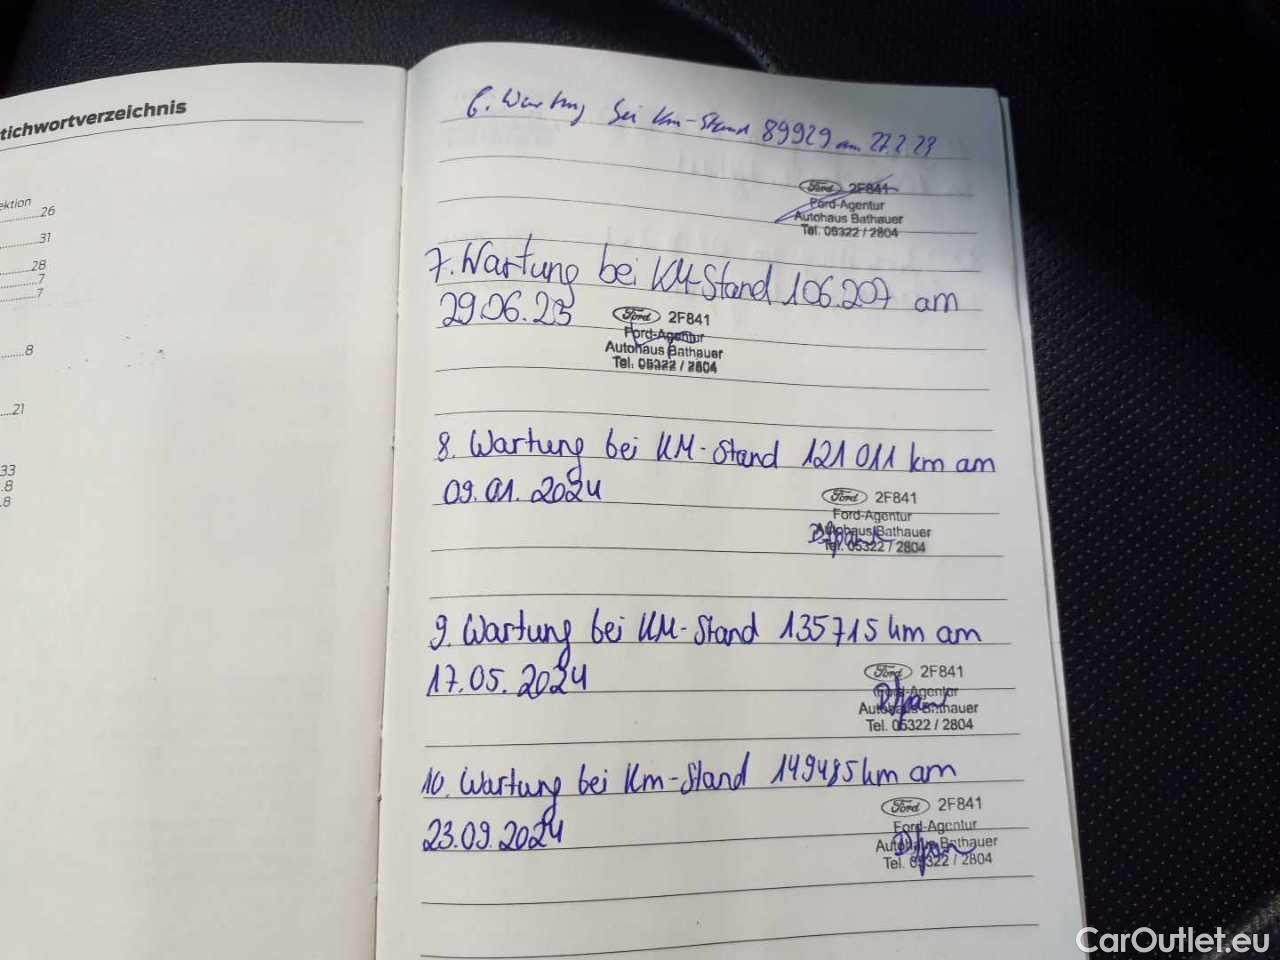 tichwortverzeichnis
ektion
26
31
28
7
7
8
21
33
.8
.8
6. Wartung bei Km-Stand 89929 am 27.2.23
Ford 2F841
Ford-Agentur
Autohaus Bathauer
Tel. 05322 / 2804
7. Wartung bei KM-Stand 106.207 am
29.06.23
Ford 2F841
Ford-Agentur
Autohaus Bathauer
Tel. 05322 / 2804
8. Wartung bei KM-Stand 121 011 km am
09.01.2024
Ford 2F841
Ford-Agentur
Autohaus Bathauer
Tel. 05322 / 2804
9. Wartung bei KM-Stand 135715 km am
17.05.2024
Ford 2F841
Ford-Agentur
Autohaus Bathauer
Tel. 05322 / 2804
10. Wartung bei Km-Stand 149485 km am
23.09.2024
Ford 2F841
Ford-Agentur
Autohaus Bathauer
Tel. 05322 / 2804
CarOutlet.eu